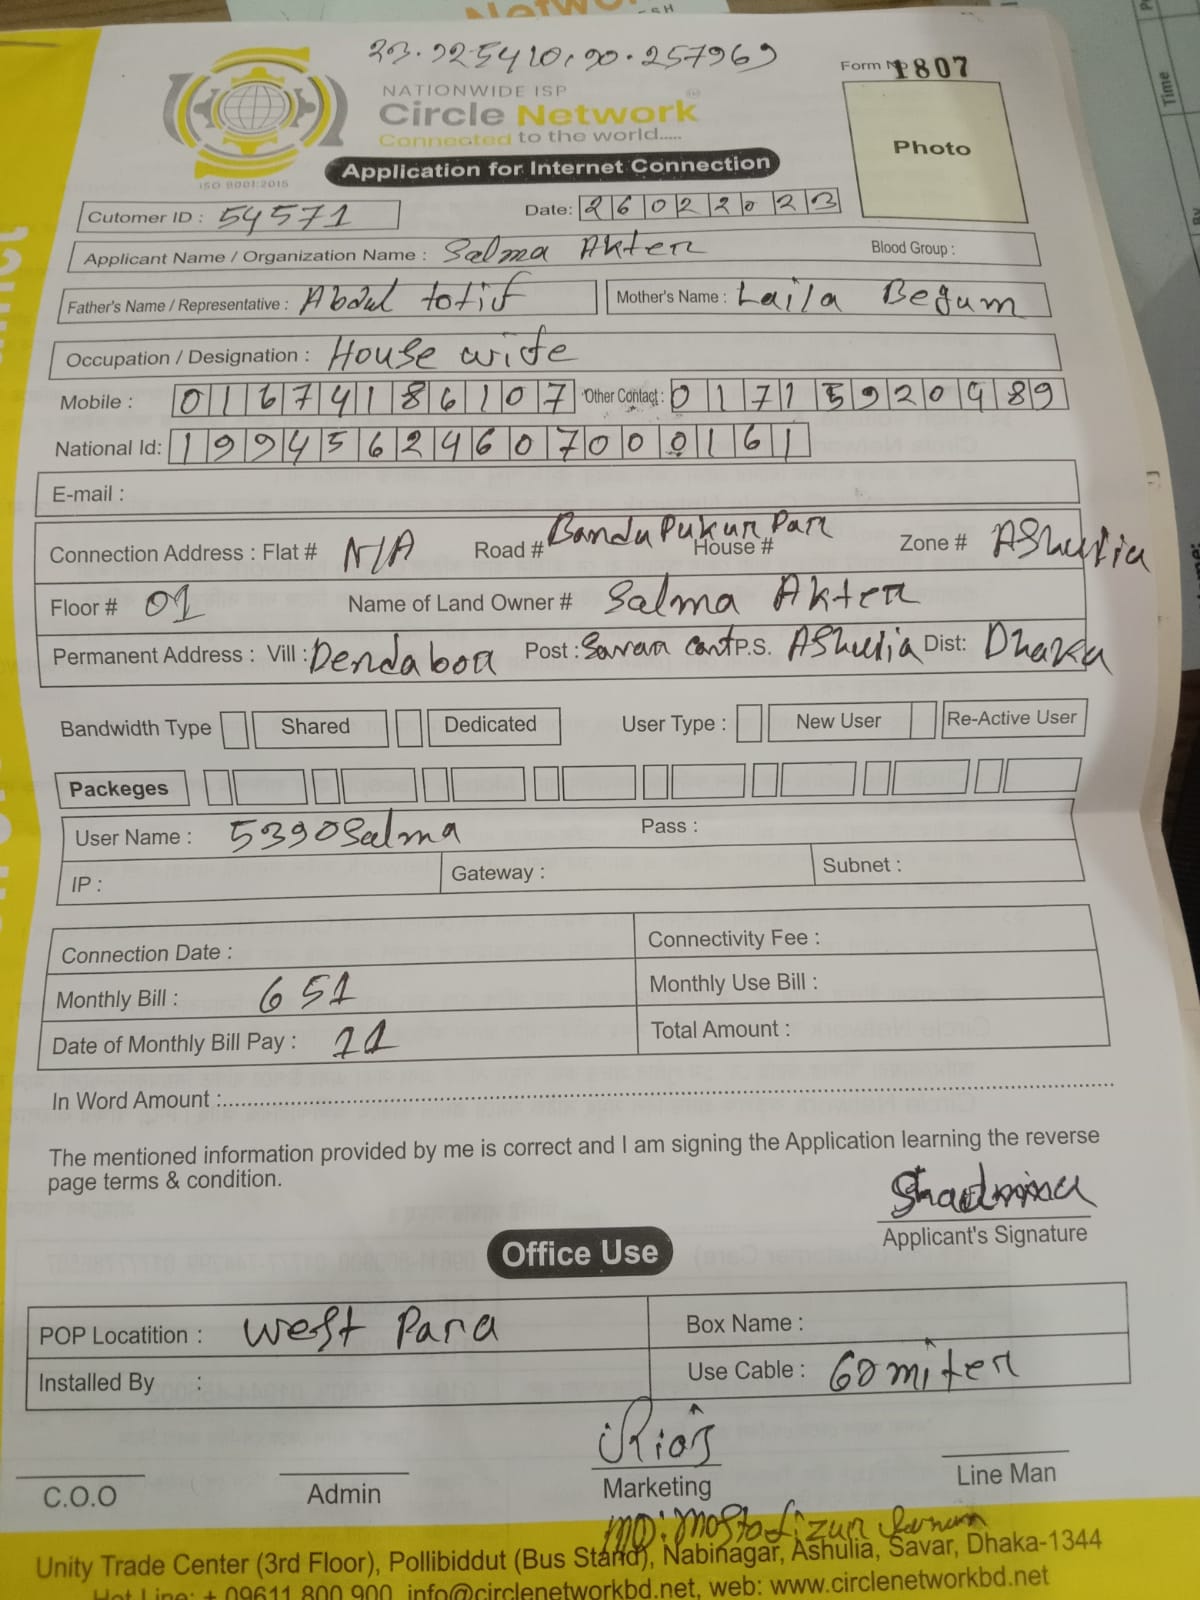 23.725410,90.257969
Form No 1807
NATIONWIDE ISP
Circle Network
Connected to the world.....
ISO 9001:2015
Photo
Application for Internet Connection
Cutomer ID : 54571
Date: 26022023
Applicant Name / Organization Name : Salma Akter Blood Group :
Father's Name / Representative : Abdul totif Mother's Name : Laila Begum
Occupation / Designation : House wife
Mobile : 01674186107 Other Contact : 01715920989
National Id: 19945624607000161
E-mail :
Connection Address : Flat # N/A Road # Bandu Pukur Par House # Zone # AShulia
Floor # 01 Name of Land Owner # Salma Akter
Permanent Address : Vill : Dendabor Post : Savar cant P.S. AShulia Dist: Dhaka
Bandwidth Type Shared Dedicated User Type : New User Re-Active User
Packeges
User Name : 5390Salma Pass :
IP : Gateway : Subnet :
Connection Date : Connectivity Fee :
Monthly Bill : 651 Monthly Use Bill :
Date of Monthly Bill Pay : 11 Total Amount :
In Word Amount :
The mentioned information provided by me is correct and I am signing the Application learning the reverse
page terms & condition.
Applicant's Signature
Office Use
POP Locatition : West Para Box Name :
Installed By : Use Cable : 60 miter
C.O.O Admin Marketing Line Man
MD: Mostafizur
Unity Trade Center (3rd Floor), Pollibiddut (Bus Stand), Nabinagar, Ashulia, Savar, Dhaka-1344
Hot Line: + 09611 800 900, info@circlenetworkbd.net, web: www.circlenetworkbd.net